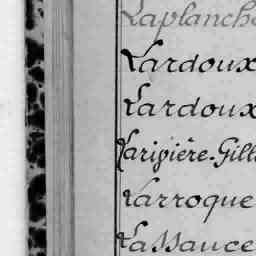 Laplanche
Lardoux
Lardoux
Larivière-Gill
Larroque
Lassauce